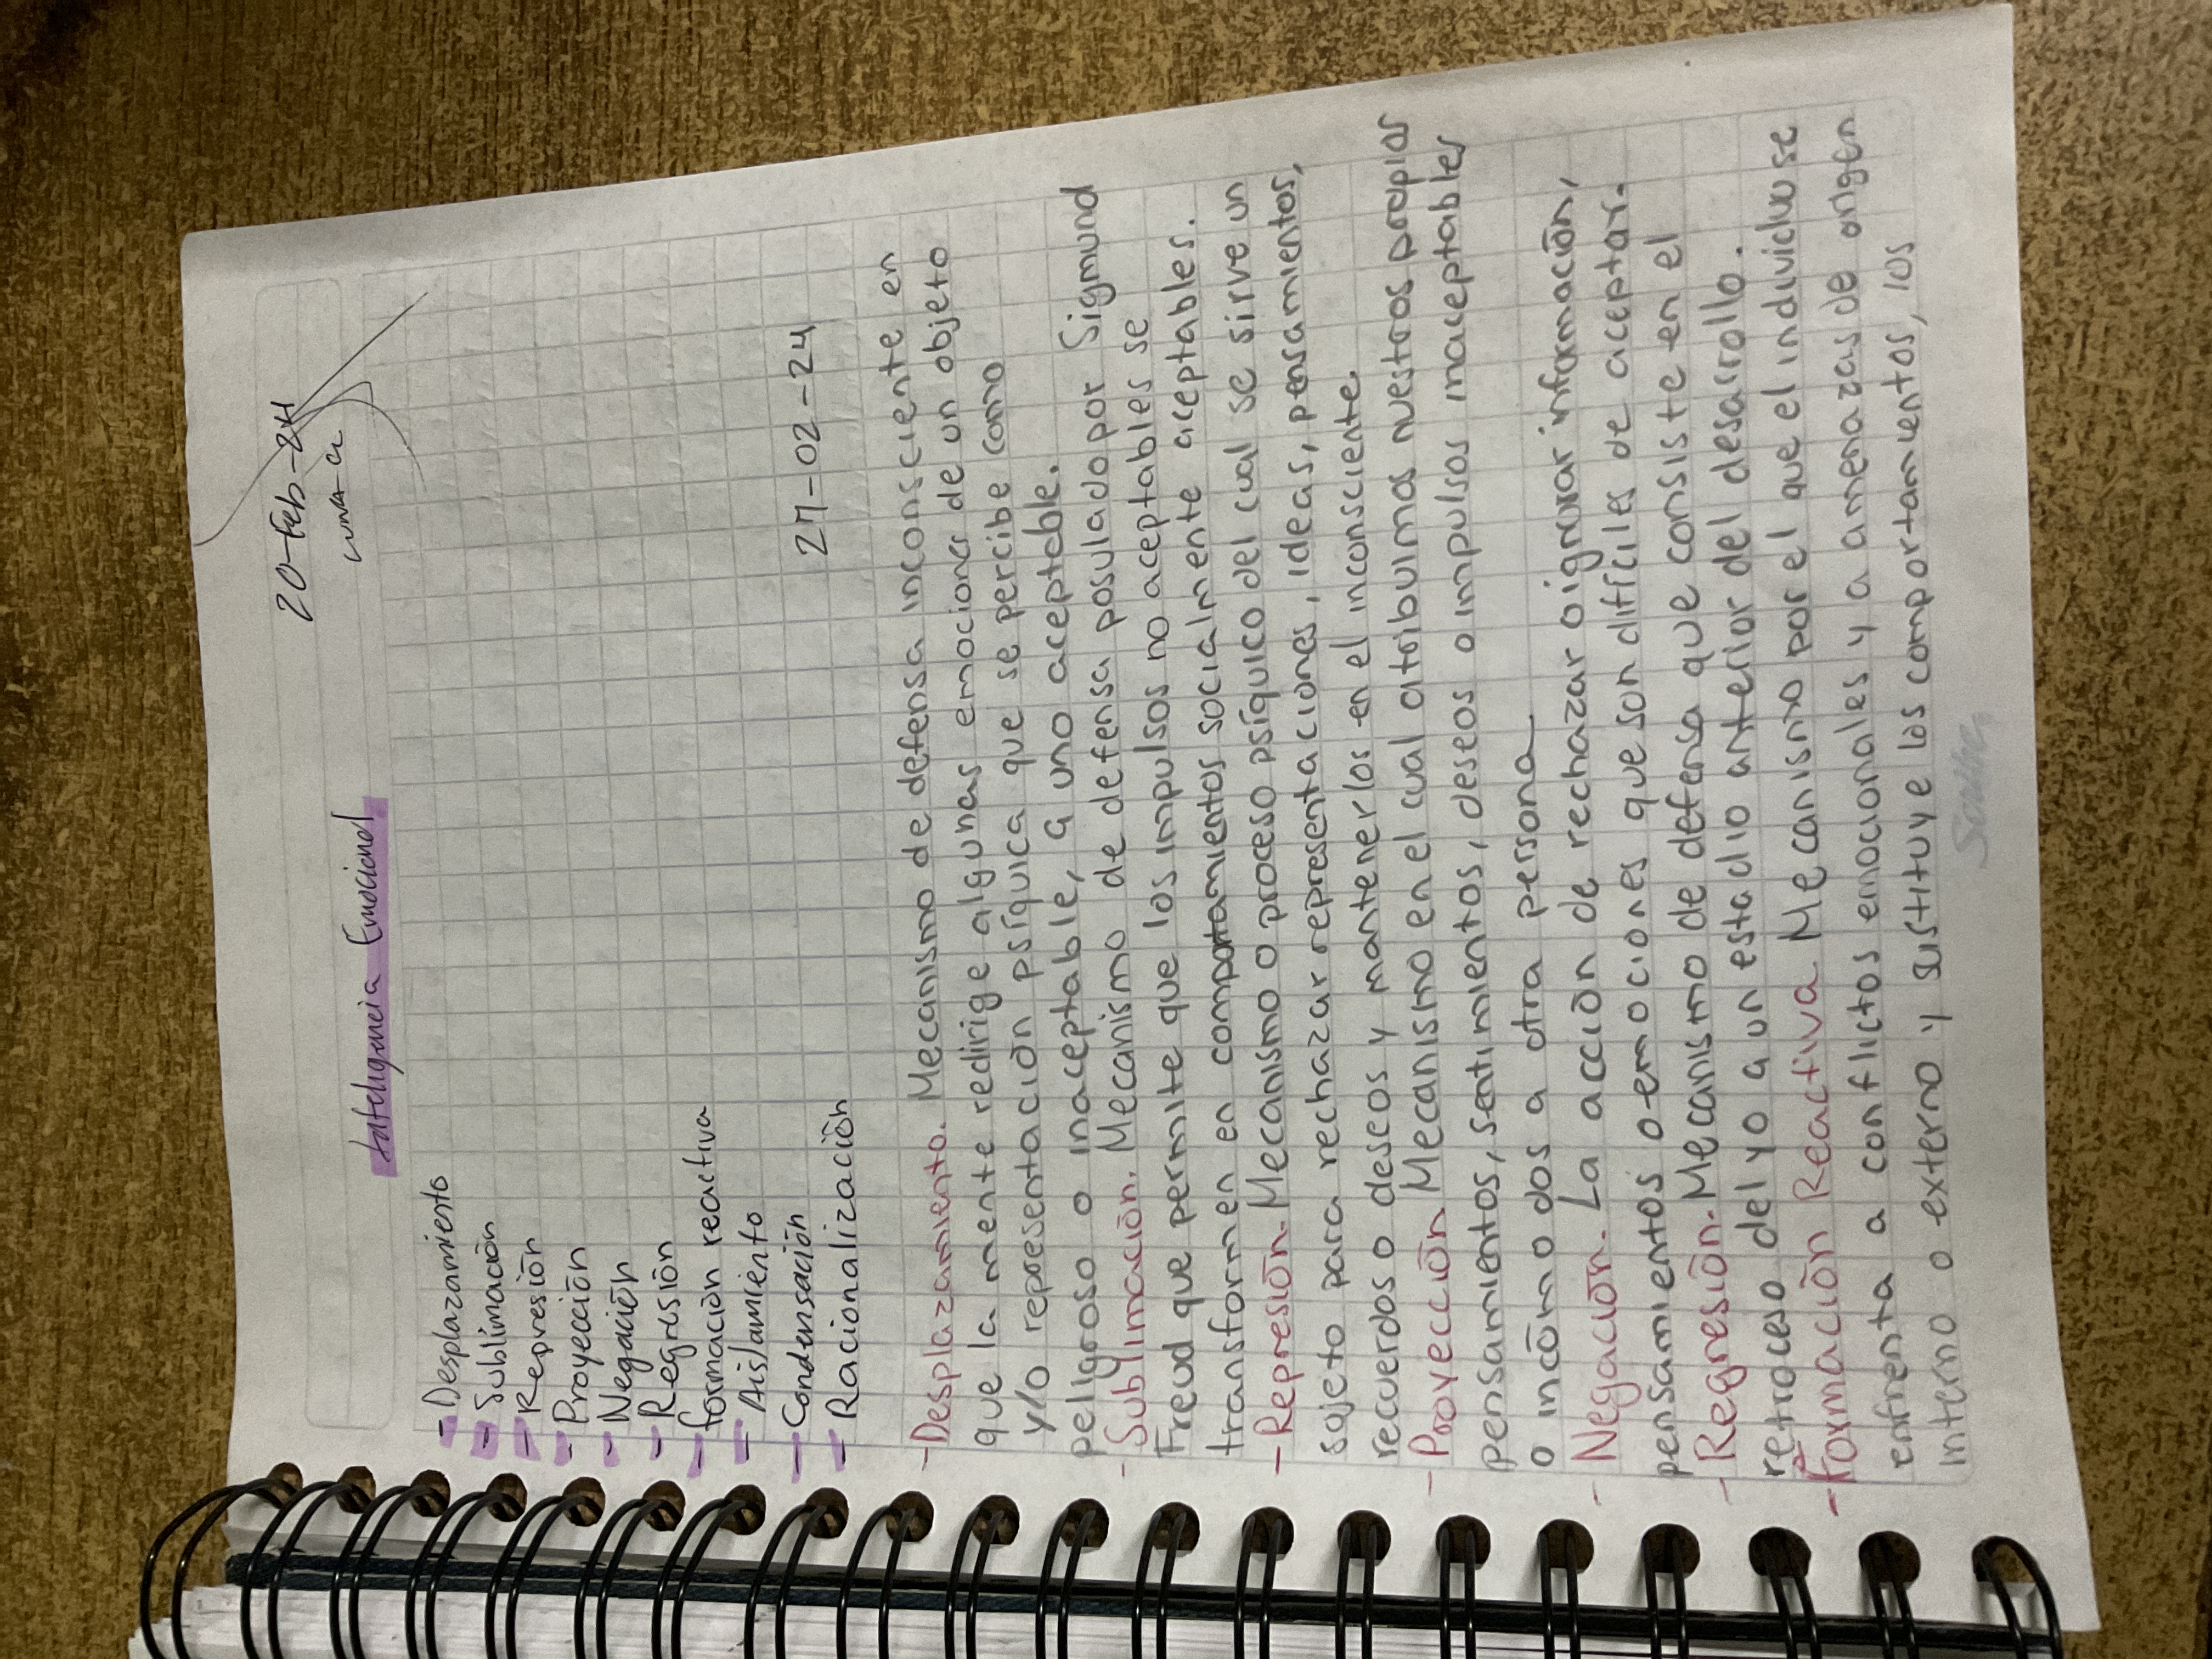 20-Feb-24
Inteligencia Emocional
- Desplazamiento
- Sublimación
- Represión
- Proyección
- Negación
- Regresión
- formación reactiva
- Aislamiento
- Condensación
- Racionalización
27-02-24
- Desplazamiento. Mecanismo de defensa inconsciente en
que la mente redirige algunas emociones de un objeto
y/o representación psíquica que se percibe como
peligroso o inaceptable, a uno aceptable.
- Sublimación. Mecanismo de defensa posulado por Sigmund
Freud que permite que los impulsos no aceptables se
transformen en comportamientos socialmente aceptables.
- Represión. Mecanismo o proceso psíquico del cual se sirve un
sojeto para rechazar representaciones, ideas, pensamientos,
recuerdos o deseos y mantenerlos en el inconsciente.
- Proyección Mecanismo en el cual atribuimos nuestros propios
pensamientos, sentimientos, deseos o impulsos inaceptables
o incómodos a otra persona
- Negación. La acción de rechazar o ignorar información,
pensamientos o emociones que son difíciles de aceptar.
- Regresión. Mecanismo de defensa que consiste en el
retroceso del yo a un estadio anterior del desarrollo.
- Formación Reactiva Mecanismo por el que el individuo se
enfrenta a conflictos emocionales y a amenazas de origen
interno o externo y sustituye los comportamientos, los